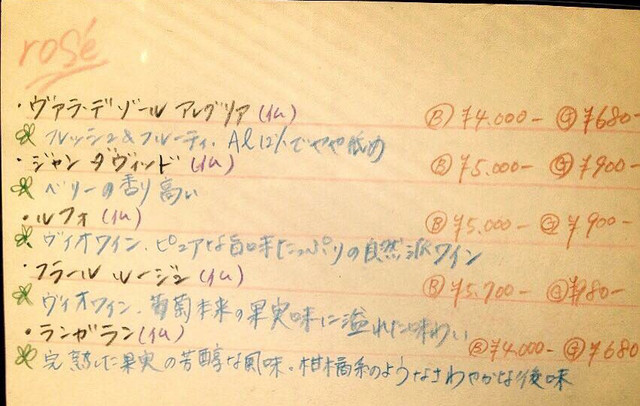 rosé
・ヴァラ・デ・ゾール アレグリア (仏) Ⓑ ¥4.000- Ⓖ ¥680-
フレッシュ&フルーティ. Al12%でやや低め
・ジャン ダヴィッド (仏) Ⓑ ¥5.000- Ⓖ ¥900-
ベリーの香り高い
・ルフォ (仏) Ⓑ ¥5.000- Ⓖ ¥900-
ヴィオワイン. ピュアな旨味たっぷりの自然派ワイン
・フラール ルージュ (仏) Ⓑ ¥5.700- Ⓖ ¥980-
ヴィオワイン. 葡萄本来の果実味に溢れた味わい
・ランガラン (仏) Ⓑ ¥4.000- Ⓖ ¥680
完熟した果実の芳醇な風味. 柑橘系のようなさわやかな後味